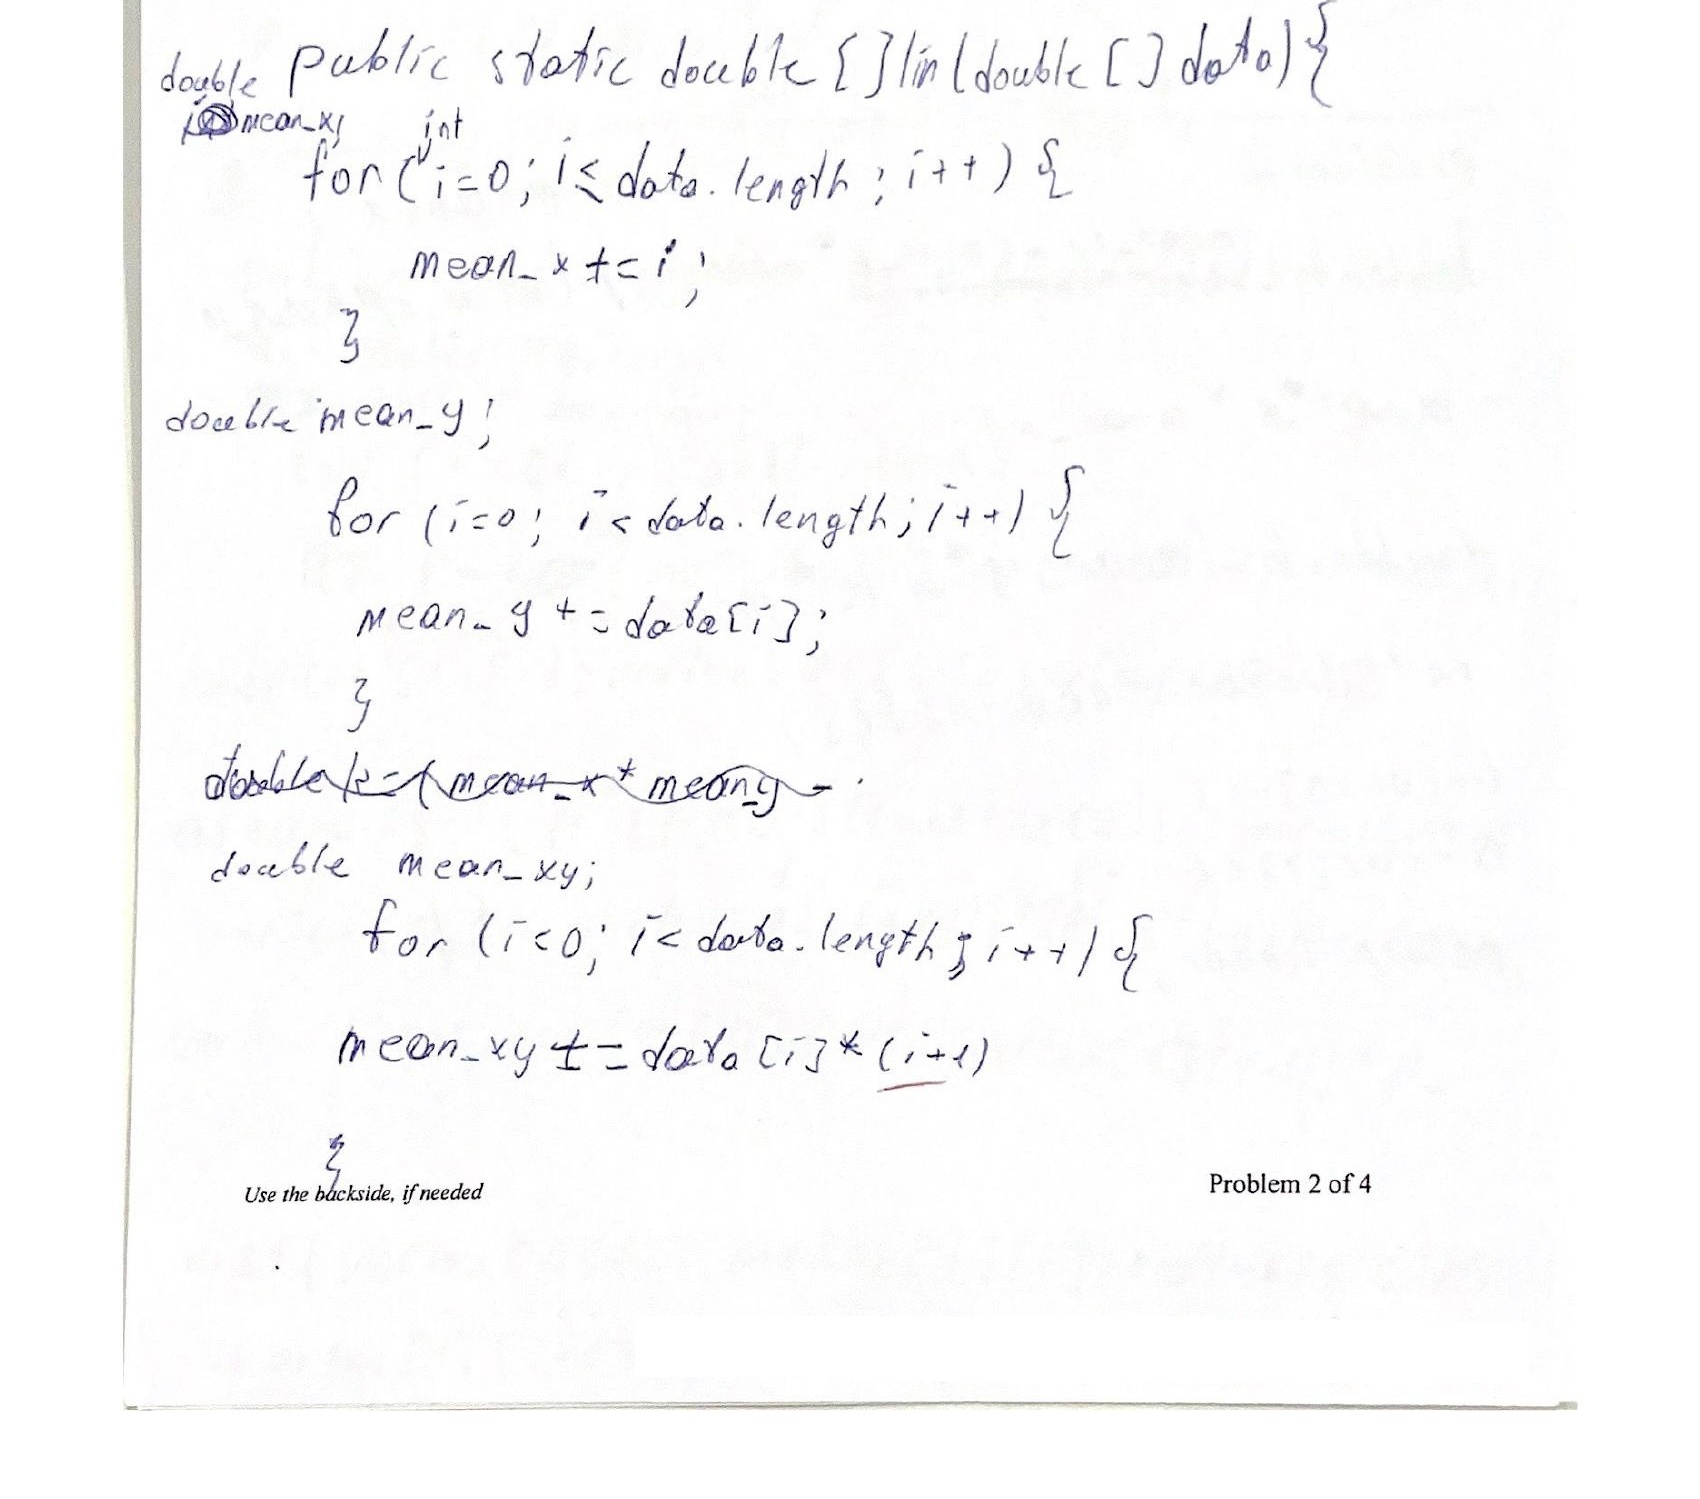 public static double []lin(double [] data){
double
mean_x;
for (int i=0; i≤data.length; i++) {
mean_x += i;
}
double mean_y;
for (i=0; i<data.length; i++) {
mean_y += data[i];
}
double k=(mean_x * mean_y -
double mean_xy;
for (i<0; i<data.length; i++) {
mean_xy += data[i]*(i+1)
}
Use the backside, if needed
Problem 2 of 4